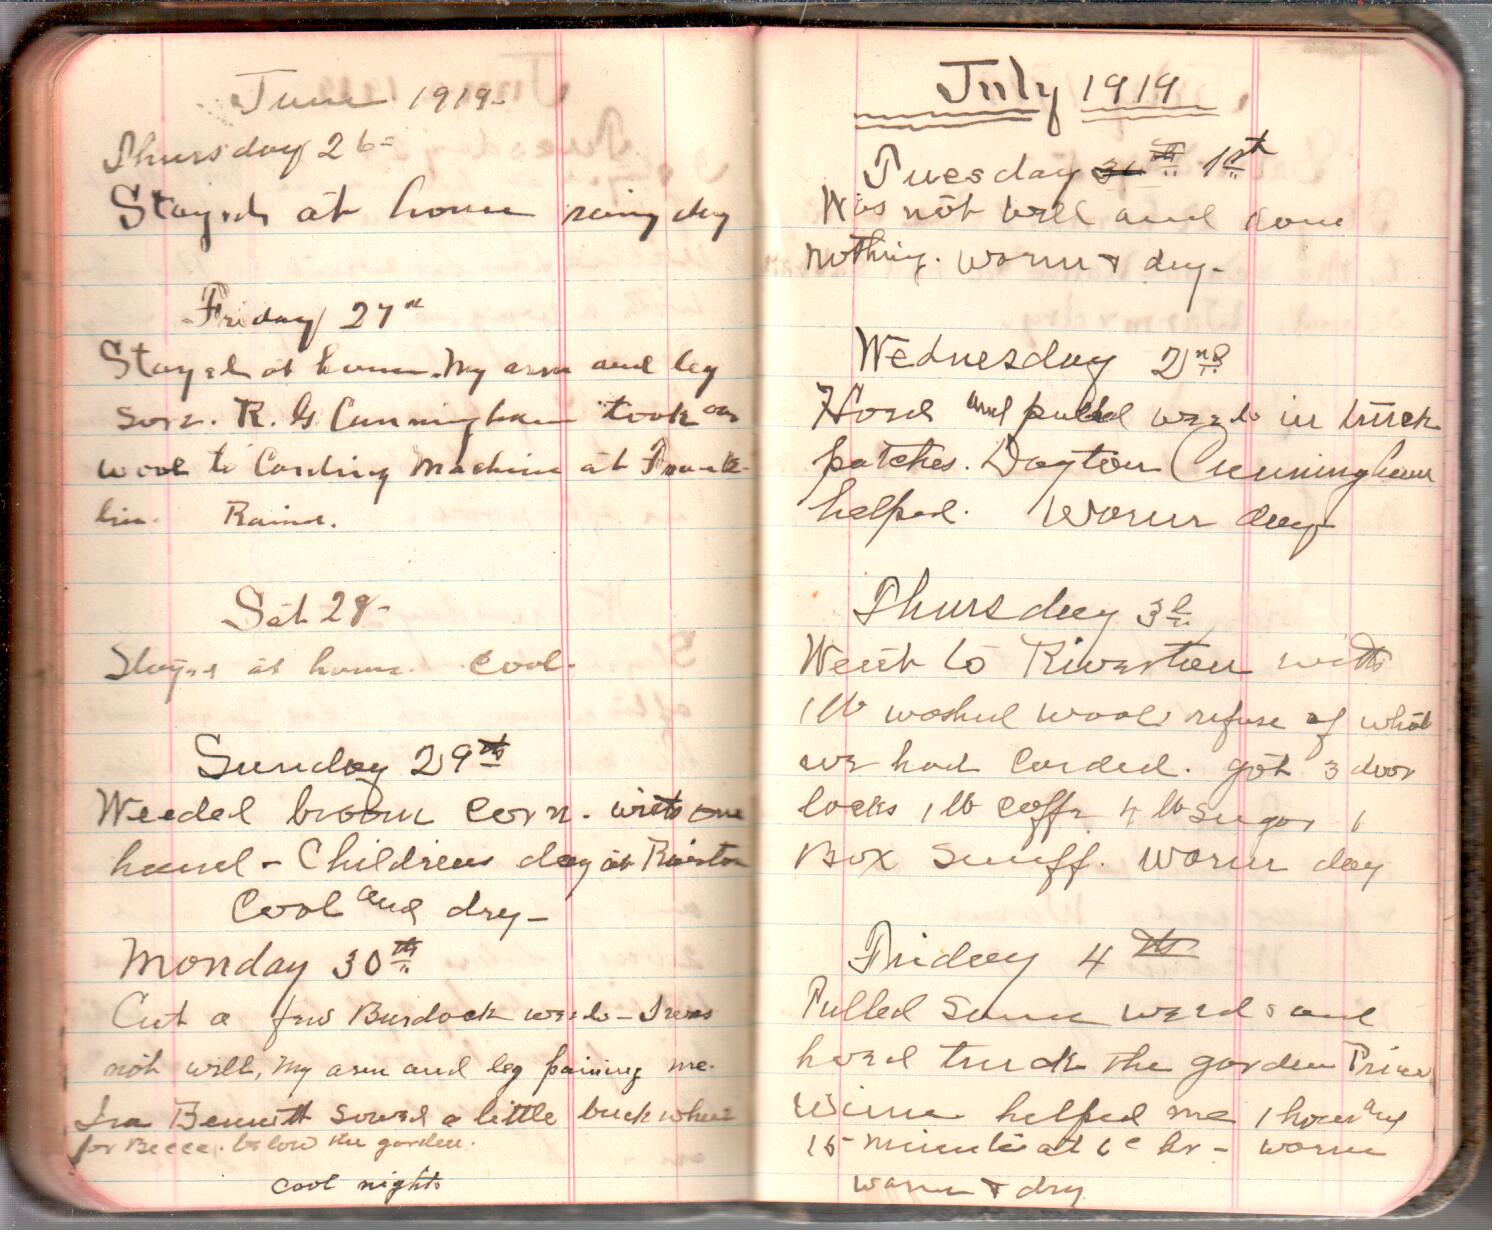 June 1919-
Thursday 26=
Stayed at home rainy day
Friday 27th
Stayed at home. My arm and leg
sore. R. G. Cunningham took our
wool to Carding Machine at Frank-
lin. Raind.
Sat 28-
Stayed at home. Cool.
Sunday 29th
Weeded broom corn. with one
hand - Childrens day at
Cool and dry-
Monday 30th
Cut a few Burdock weeds - I was
not well, My arm and leg paining me.
Ira Bennett sowed a little buckwheat
for Becca. below the garden.
cool nights
July 1919
Tuesday 1st
Was not well and done
nothing. warm & dry-
Wednesday 2nd
Hoed and pulled weeds in truck
patches. Dayton Cunningham
helped. Warm day
Thursday 3d
Went to Riverton with
1 lb washed wool refuse of what
we had Carded. got 3 door
locks 1 lb coffe 4 lb Sugar 1
Box Snuff. Warm day
Friday 4th
Pulled Some weeds and
hoed truck the garden
helped me 1 hour and
15 minutes at hr - warm
warm & dry